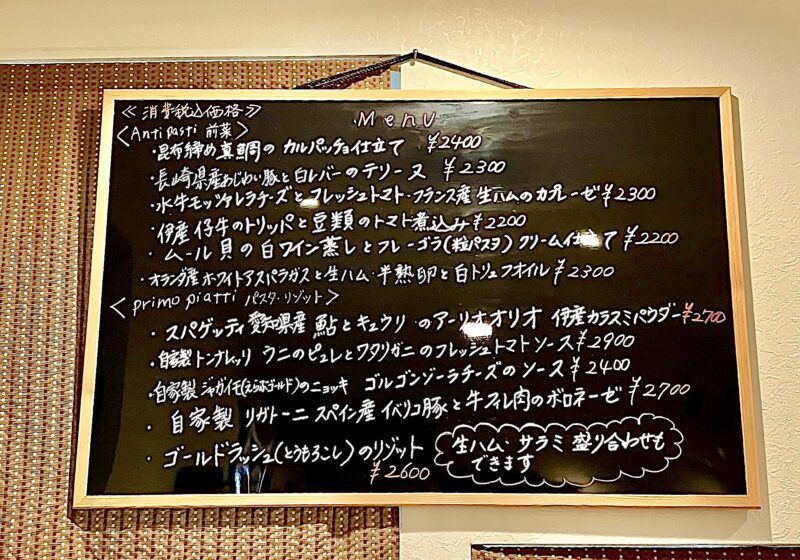 ≪消費税込価格≫
Menu
<Antipasti 前菜>
・昆布締め真鯛の カルパッチョ仕立て ¥2400
・長崎県産あじわい豚と白レバーのテリーヌ ¥2300
・水牛モッツァレラチーズとフレッシュトマト・フランス産 生ハムのカプレーゼ ¥2300
・伊産 仔牛のトリッパと豆類のトマト煮込み ¥2200
・ムール貝の白ワイン蒸しとフレーゴラ(粒パスタ) クリーム仕立て ¥2200
・オランダ産ホワイトアスパラガスと生ハム・半熟卵と白トリュフオイル ¥2300
<primo piatti パスタ・リゾット>
・スパゲッティ 愛知県産 鮎とキュウリ のアーリオオリオ 伊産カラスミパウダー ¥2700
・自家製トンナレッリ ウニのピュレとワタリガニのフレッシュトマトソース ¥2900
・自家製 ジャガイモ(ゴールド)のニョッキ ゴルゴンゾーラチーズのソース ¥2400
・自家製 リガトーニ スペイン産 イベリコ豚と牛フィレ肉のボロネーゼ ¥2700
・ゴールドラッシュ(とうもろこし)のリゾット
¥2600
生ハム、サラミ 盛り合わせも
できます